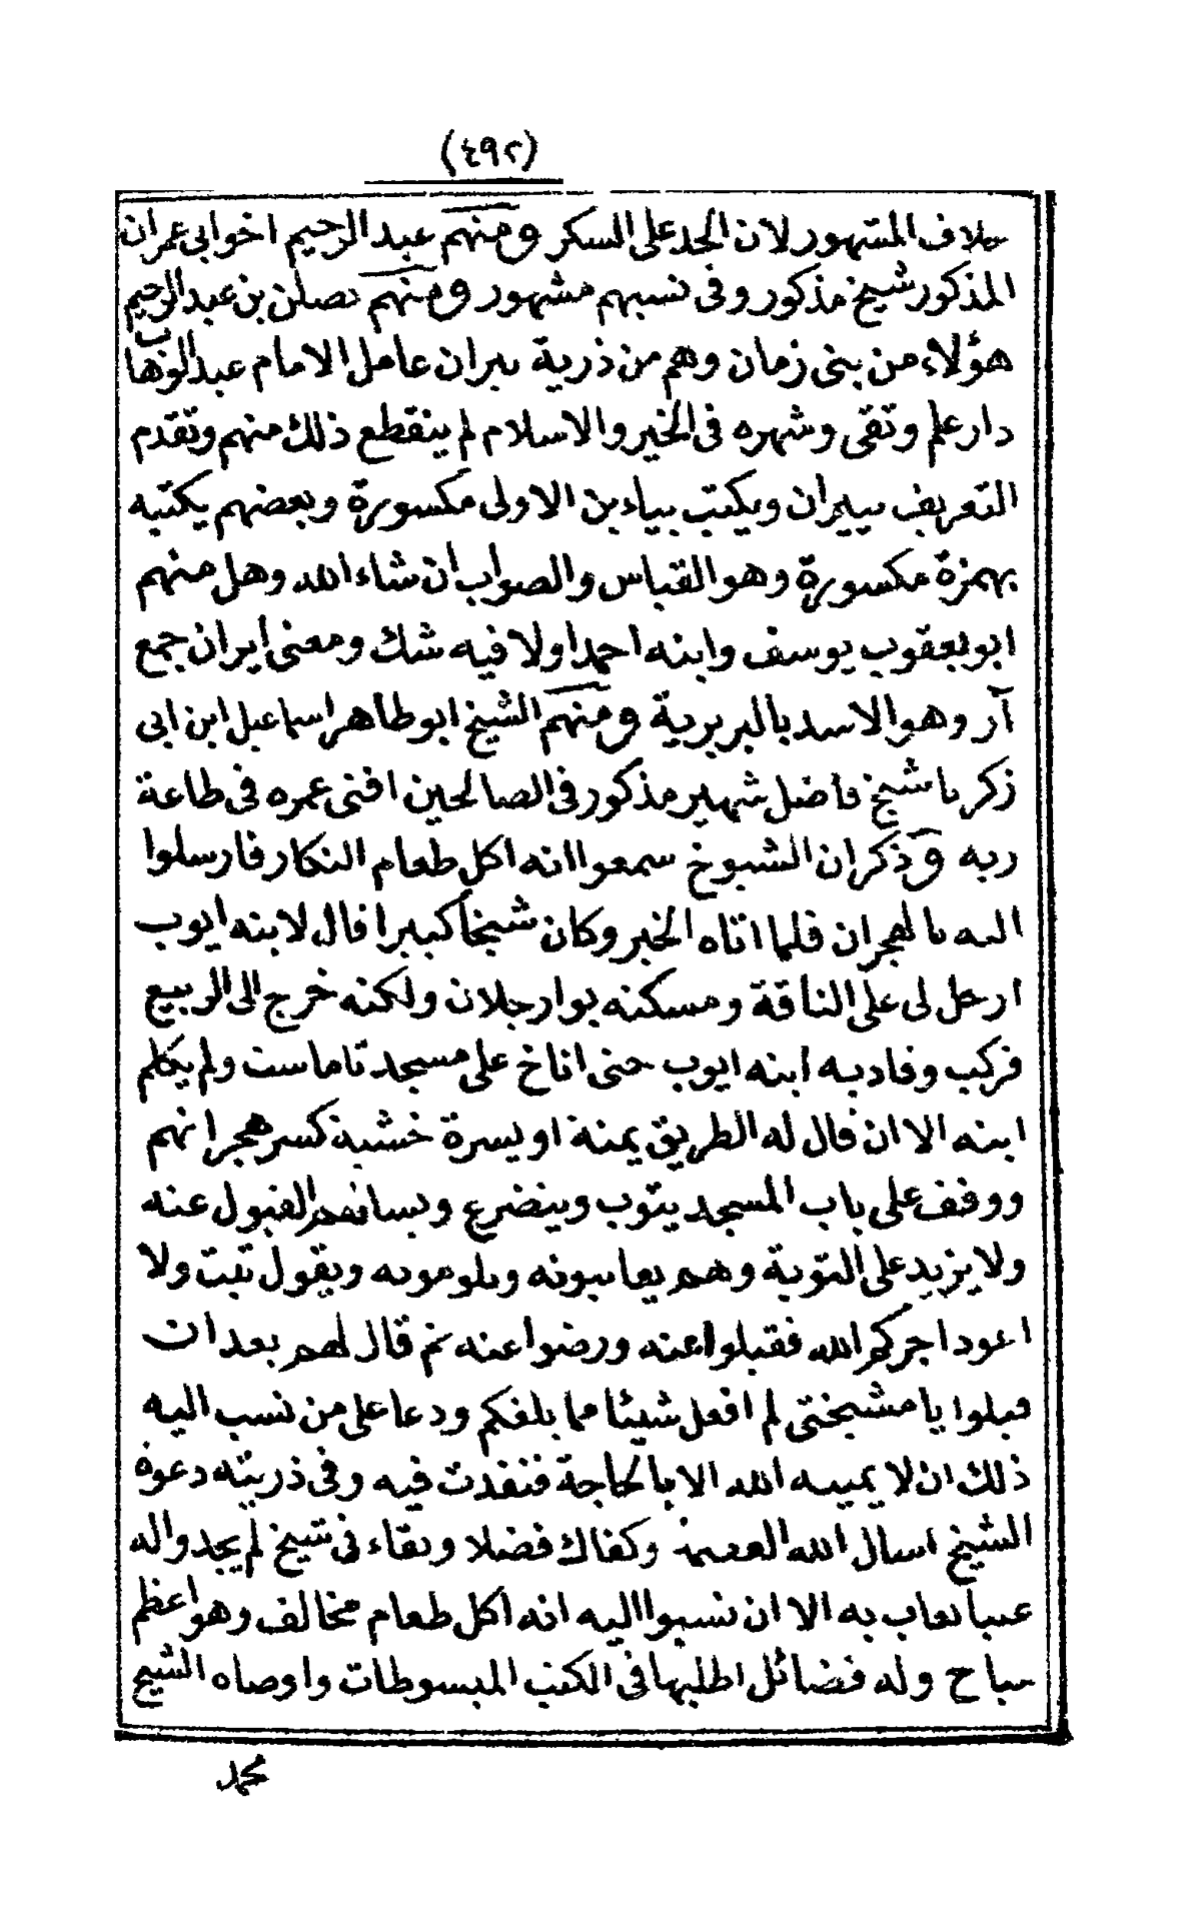 (٤٩٢)
خلاف المشهور لان الحد على السكر ومنهم عبد الرحيم اخو ابى عمران
المذكور شيخ مذكور وفى نسبهم مشهور ومنهم يصلتن بن عبد الرحيم
هؤلاء من بنى زمان وهم من ذرية ببران عامل الامام عبد الوهاب
دار علم وتقى وشهره فى الخير والاسلام لم ينقطع ذلك منهم وتقدم
التعريف ببيران ويكتب بياءين الاولى مكسورة وبعضهم يكتبه
بهمزة مكسورة وهو القياس والصواب ان شاء الله وهل منهم
ابو يعقوب يوسف وابنه احمد اولا فيه شك ومعنى ايران جمع
آر وهو الاسد بالبربرية ومنهم الشيخ ابو طاهر اسماعيل ابن ابى
زكريا شيخ فاضل شهير مذكور فى الصالحين افنى عمره فى طاعة
ربه وذكر ان الشيوخ سمعوا انه اكل طعام النكار فارسلوا
اليه بالهجران فلما اتاه الخبر وكان شيخا كبيرا قال لابنه ايوب
ارحل لى على الناقة ومسكنه بوارجلان ولكنه خرج الى الربيع
فركب وقاد به ابنه ايوب حتى اناخ على مسجد تاماست ولم يكلم
ابنه الا ان قال له الطريق يمنة او يسرة خشية كسر هجرانهم
ووقف على باب المسجد يتوب ويتضرع ويسالهم القبول عنه
ولا يزيد على التوبة وهم يعاتبونه ويلومونه ويقول تبت ولا
اعود اجركم الله فقبلوا عنه ورضوا عنه ثم قال لهم بعد ان
قبلوا يا مشيختى لم افعل شيئا مما بلغكم ودعا على من نسب اليه
ذلك ان لا يميته الله الا بالحاجة فنفذت فيه وفى ذريته دعوة
الشيخ اسال الله العصمة وكفاك فضلا وتقاء فى شيخ لم يجدوا له
عيبا يعاب به الا ان نسبوا اليه انه اكل طعام مخالف وهو اعظم
مباح وله فضائل اطلبها فى الكتب المبسوطات واوصاه الشيخ
محمد